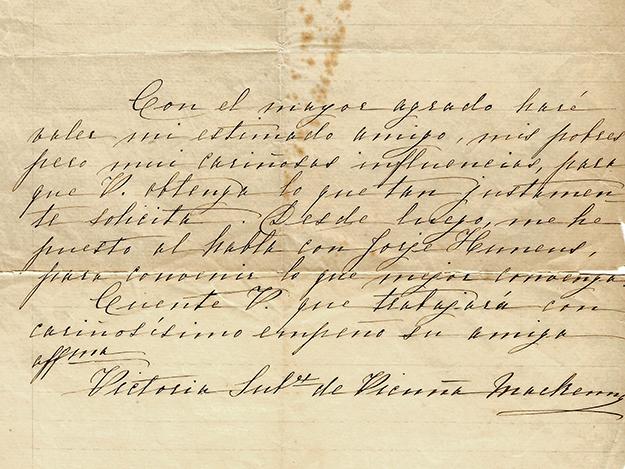 Con el mayor agrado haré
valer mi estimado amigo, mis pobres
pero mui cariñosas influencias, para
que V. obtenga lo que tan justamen
te solicita. Desde luego, me he
puesto al habla con Jorje Huneus,
para convenir lo que mejor convenga.
Cuente V. que trabajará con
cariñosísimo empeño su amiga
affma
Victoria Sub. de Vicuña Mackenna